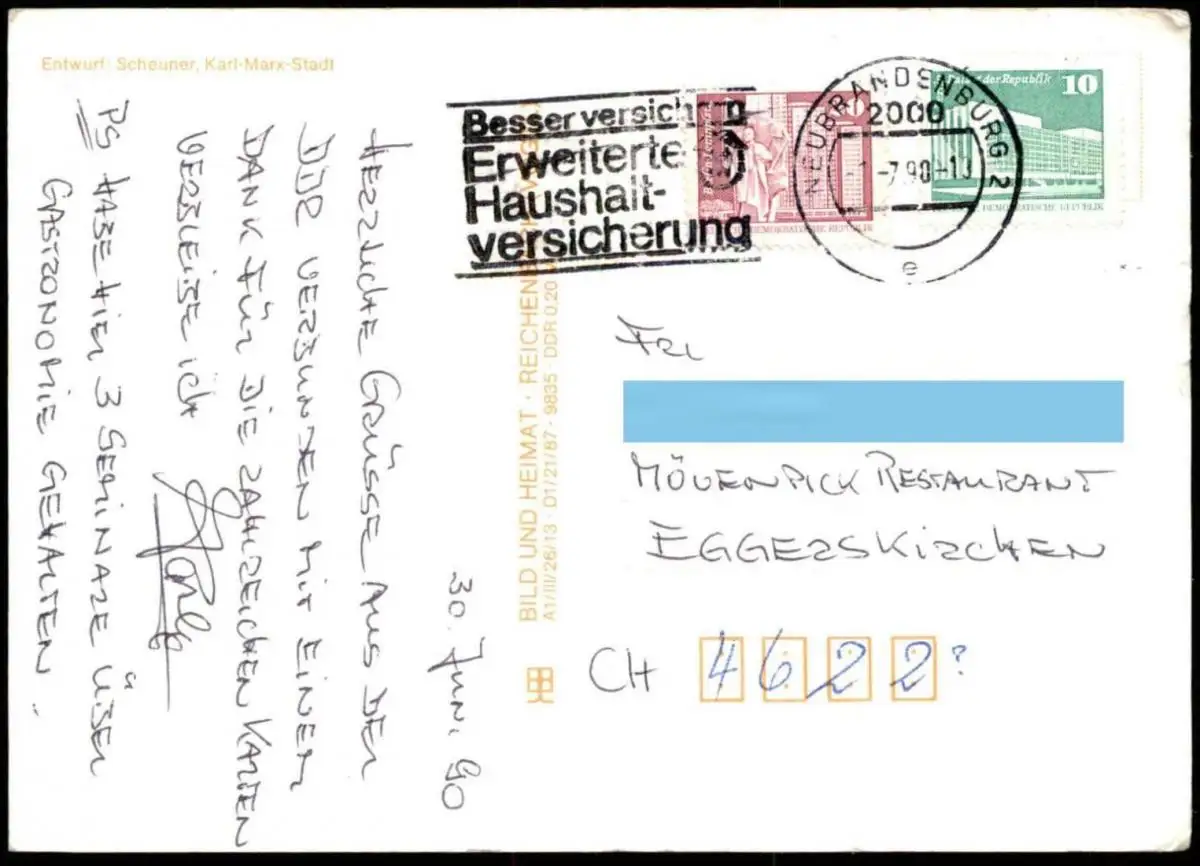 Entwurf: Scheuner, Karl-Marx-Stadt
Besser versichern
Erweiterte
Haushalt-
versicherung
NEUBRANDENBURG 2
2000
-7.90-
e
Berlin-Leninplatz
DEMOKRATISCHE REPUBLIK
Palast der Republik
10
DEMOKRATISCHE REPUBLIK
BILD UND HEIMAT · REICHENBACH
A1/III/26/13 · D1/21/87 · 9835 · DDR 0,20
30. JUNI 90
HERZLICHE GRÜSSE AUS DER
DDR VERBUNDEN MIT EINEM
DANK FÜR DIE ZAHLREICHEN KARTEN
VERBLEIBE ICH
PS HABE HIER 3 SEMINARE ÜBER
GASTRONOMIE GEHALTEN.
FRL
MÖVENPICK RESTAURANT
EGGERSKIRCHEN
CH 4622?